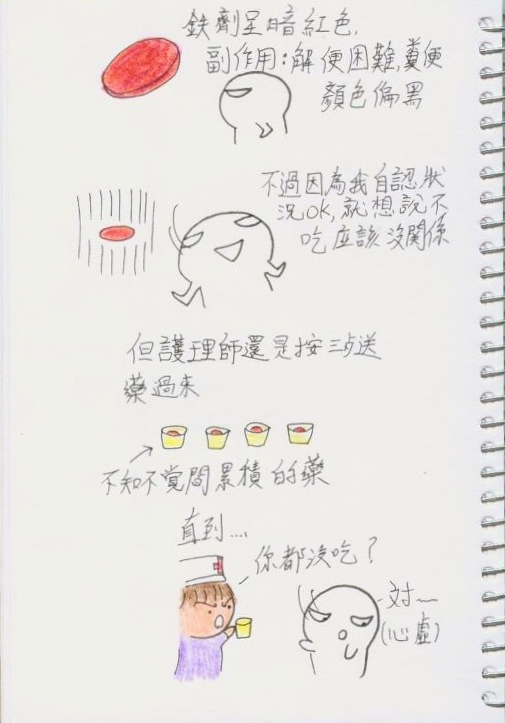 鉄劑呈暗紅色,
副作用:解便困難,糞便
顏色偏黑
不過因為我自認狀
況OK,就想說不
吃应該沒關係
但護理師還是按三点送
藥過來
不知不覚間累積的藥
直到....
你都沒吃?
对~
(心虛)